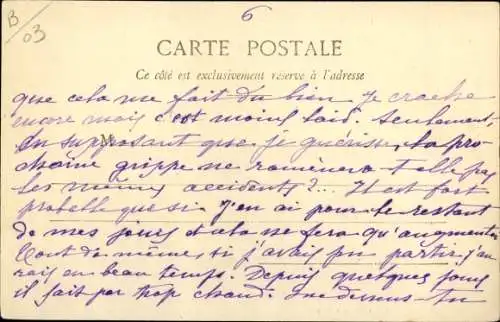 6
B/03
CARTE POSTALE
Ce côté est exclusivement réservé à l'adresse
que cela me fait du bien. Je crache
encore mais c'est moins laid. Seulement,
en supposant que je guérisse, la pro-
M
chaine grippe ne ramènera-t-elle pas
les mêmes accidents ?... Il est fort
probable que si. J'en ai pour le restant
de mes jours et cela ne fera qu'augmenter
Tout de même, si j'avais pu partir j'au
rais eu beau temps. Depuis quelques jours
il fait par trop chaud. tu